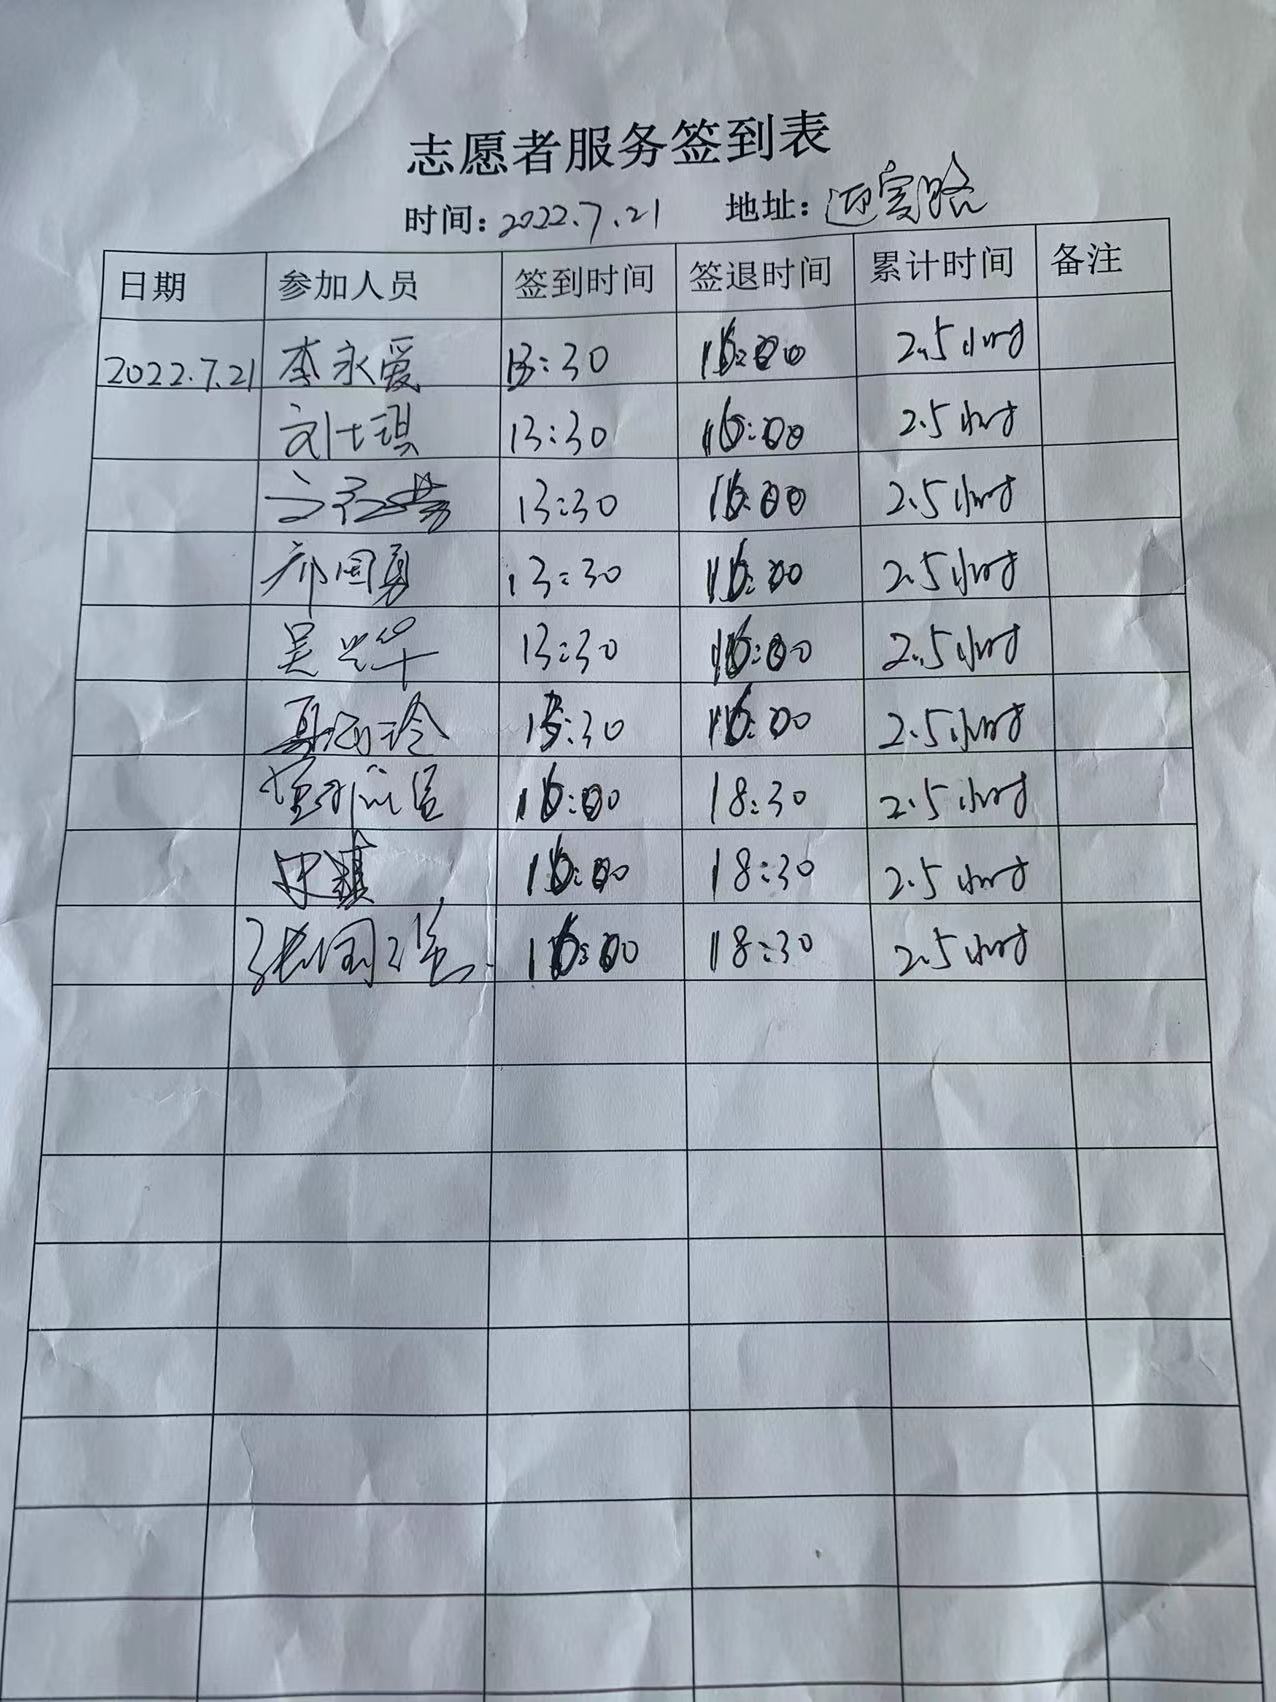 志愿者服务签到表
时间：2022.7.21 地址：迎宾路
日期 参加人员 签到时间 签退时间 累计时间 备注
2022.7.21 李永爱 13:30 16:00 2.5小时
刘士琪 13:30 16:00 2.5小时
13:30 16:00 2.5小时
邝国勇 13:30 16:00 2.5小时
吴兴华 13:30 16:00 2.5小时
13:30 16:00 2.5小时
16:00 18:30 2.5小时
16:00 18:30 2.5小时
张国强 16:00 18:30 2.5小时